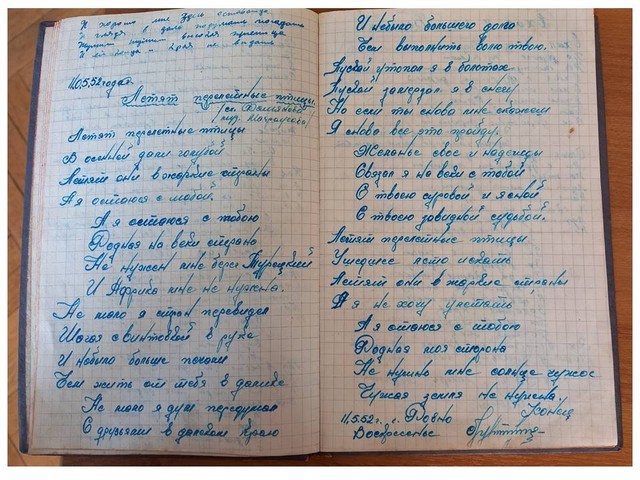 И хорошо мне здесь остановиться
И глядя в даль подумать помечтать
11.05.52 года.
Летят перелетные птицы.
муз.
Летят перелетные птицы
В осенней дали голубой
Летят они в жаркие страны
А я остаюся с тобой.
А я остаюся с тобою
Родная на веки страна
Не нужен мне берег Турецкий
И Африка мне не нужна.
Не мало я стран перевидал
Шагая с винтовкой в руке
И небыло больше печали
Чем жить от тебя в далике
Не мало я дум передумал
С друзьями в далеком краю
И небыло большего долга
Чем выполнить волю твою.
Пускай утопал я в болотах
Пускай замерзал я в снегу
Но если ты снова мне скажешь
Я снова все это пройду.
Желанье свое и надежды
Связал я на веки с тобой
С твоею суровой и ясной
С твоею завидной судьбой.
Летят перелетные птицы
Ушедшее лето искать
Летят они в жаркие страны
А я не хочу улетать
А я остаюся с тобою
Родная моя сторона
Не нужно мне солнце чужое
Чужая земля не нужна.
Конец
11.5.52 г. г. Ровно
Воскресенье